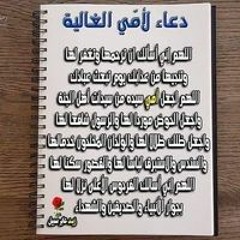 دعاء لأمّي الغالية
اللهم إني أسألك ان ترحمها وتغفر لها
وتنجيها من عذابك يوم تبعث عبادك
اللهم اجعل أمي سيدة من سيدات أهل الجنة
واجعل الحوض موردا لها والرسول شافعا لها
واجعل ظلك ظلالا لها والولدان المخلدون خدما لها
والسندس والاستبرق لباسا لها والقصور سكنا لها
اللهم إني أسألك الفردوس الأعلى نزلا لها
بجوار الأنبياء والصديقين والشهداء